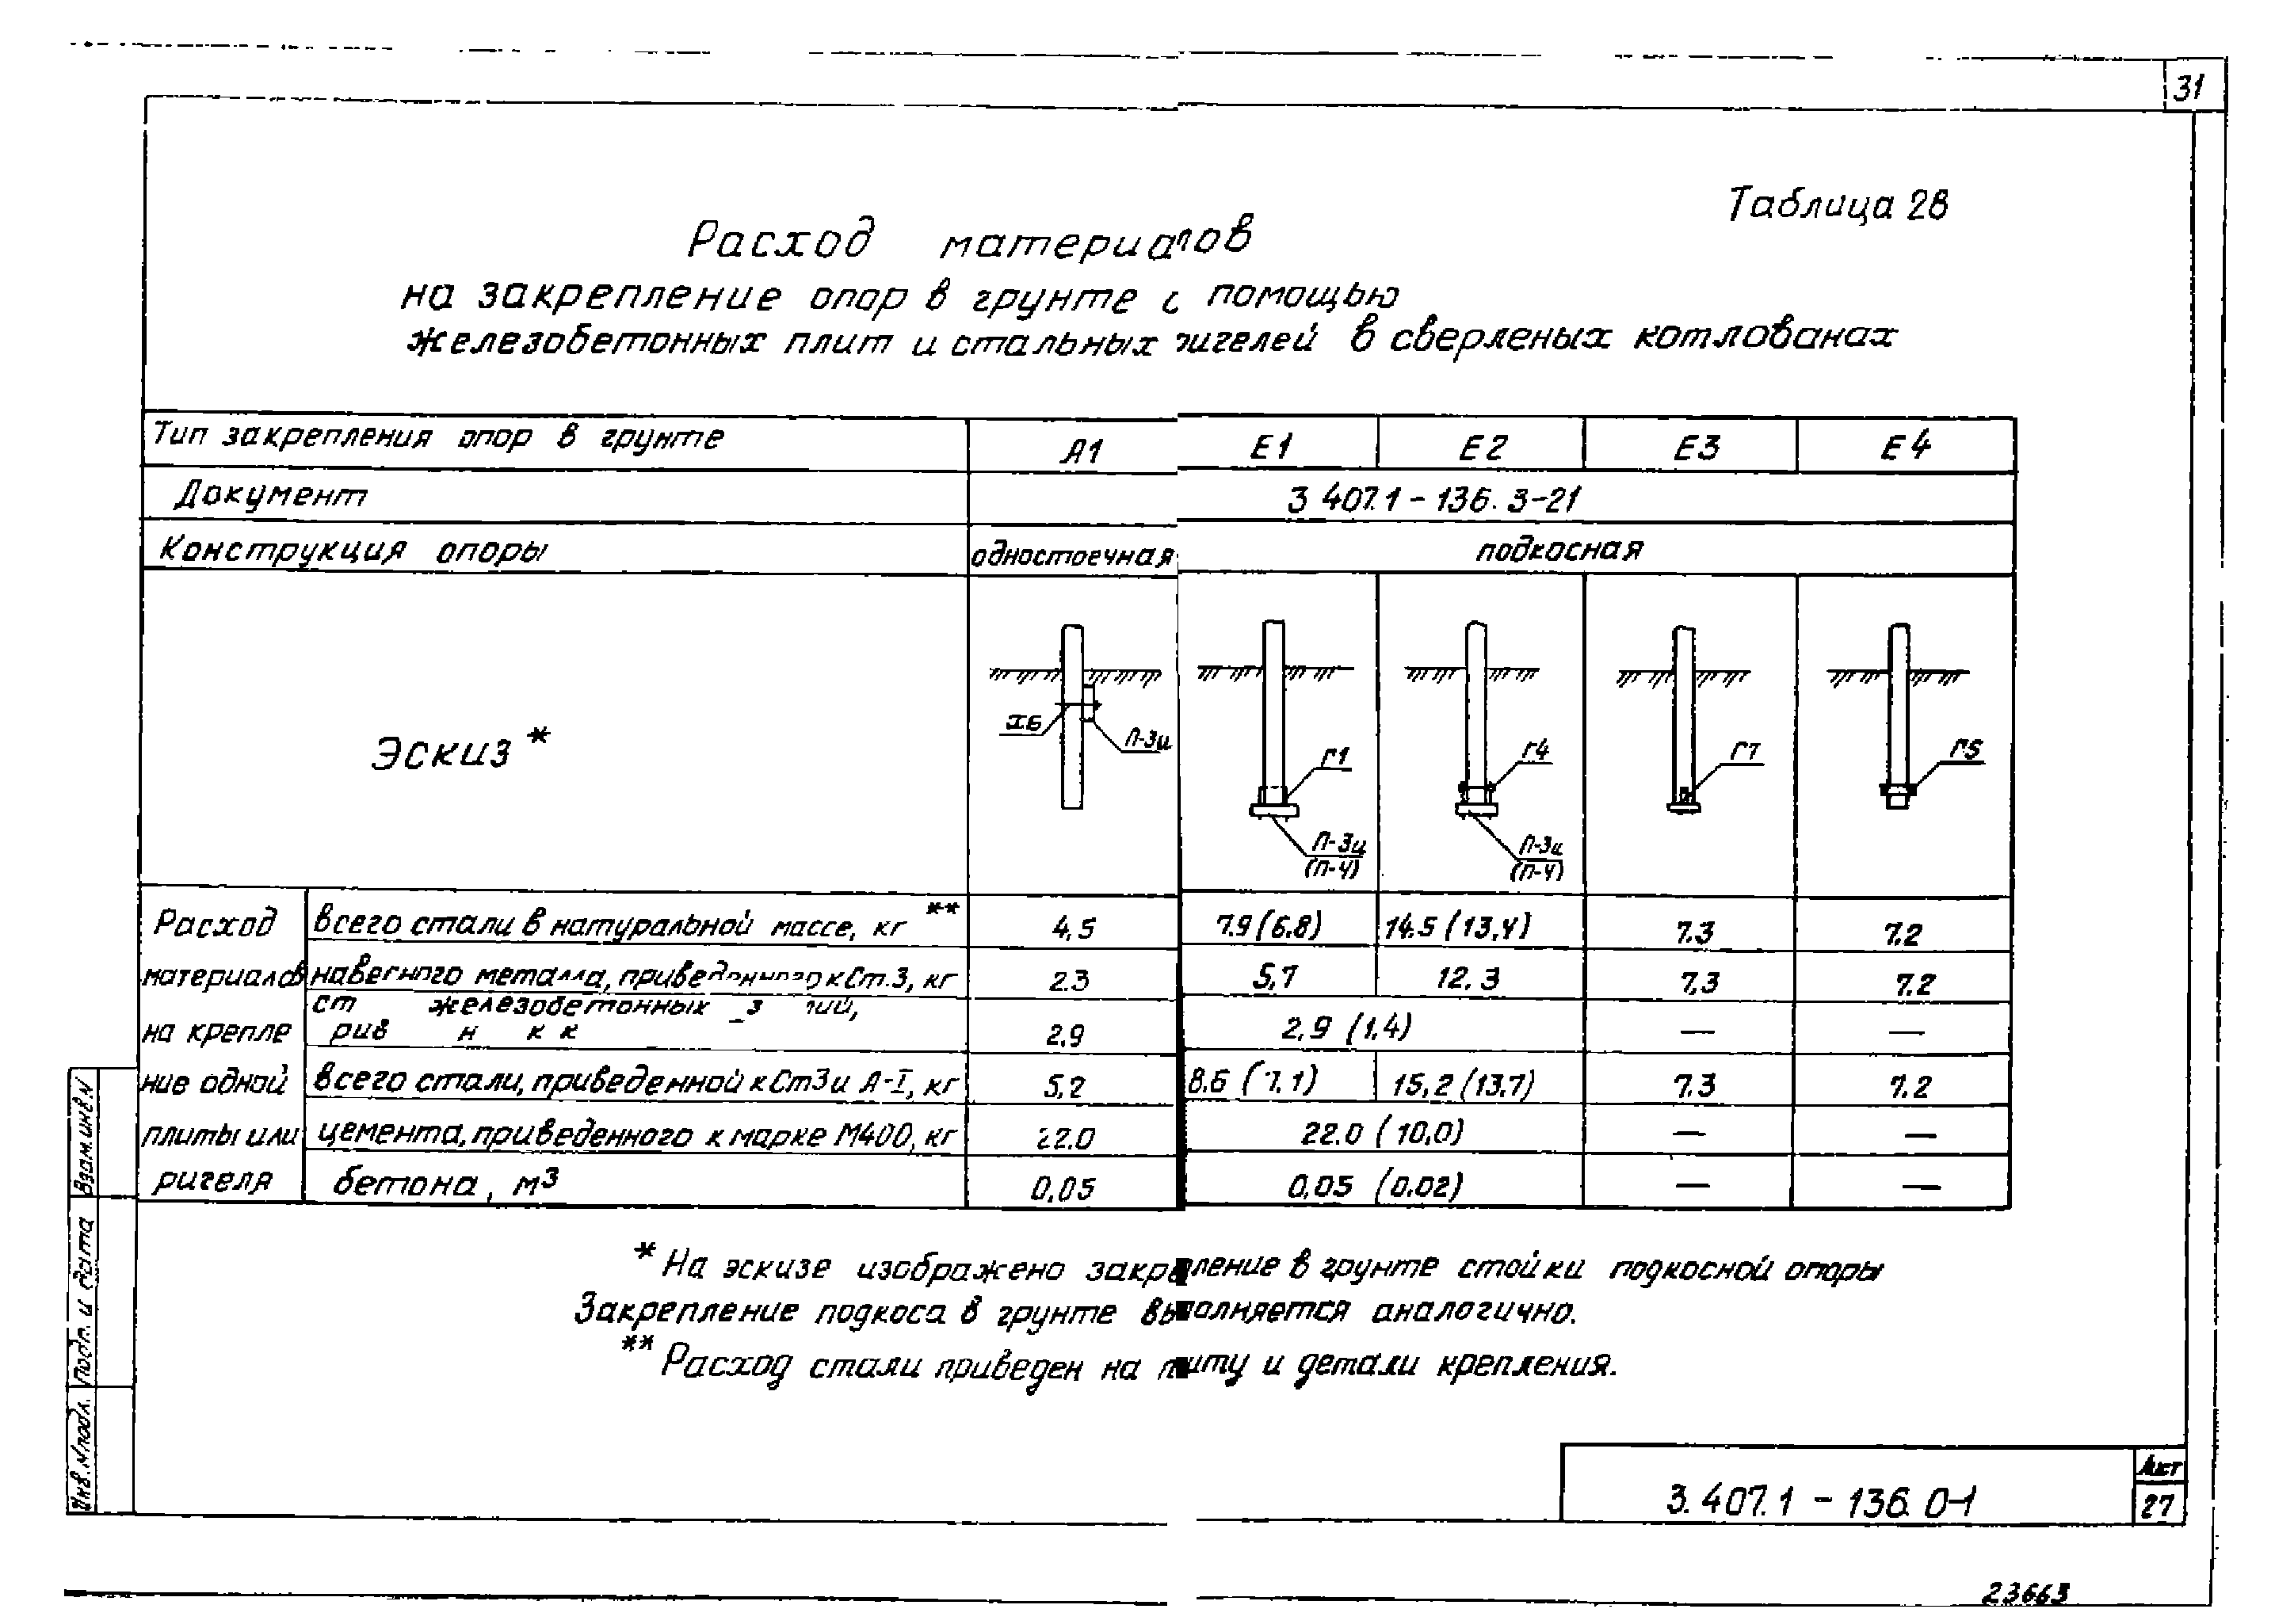 31
Таблица 28
Расход материалов
на закрепление опор в грунте с помощью
железобетонных плит и стальных ригелей в сверленых котлованах
Тип закрепления опор в грунте А1 Е1 Е2 Е3 Е4
Документ 3 407.1-136. 3-21
Конструкция опоры одностоечная подкосная
Эскиз*
Х6 П-3и Г1 П-3и (П-4) Г4 П-3и (П-4) Г7 Г5
Расход всего стали в натуральной массе, кг ** 4,5 7.9 (6.8) 14.5 (13,4) 7.3 7.2
материалов навесного металла, приведенного к Ст.3, кг 2.3 5,7 12.3 7,3 7.2
на крепле железобетонных 2,9 2,9 (1,4) — —
ние одной всего стали, приведенной к Ст3 и А-I, кг 5,2 8.6 (7.1) 15,2 (13,7) 7.3 7.2
плиты или цемента, приведенного к марке М400, кг 22.0 22.0 (10,0) — —
ригеля бетона, м³ 0,05 0,05 (0.02) — —
* На эскизе изображено закрепление в грунте стойки подкосной опоры
Закрепление подкоса в грунте выполняется аналогично.
** Расход стали приведен на плиту и детали крепления.
Взам. инв. №
Подп. и дата
Инв. № подл.
3.407.1 - 136.0-1
Лист
27
23663